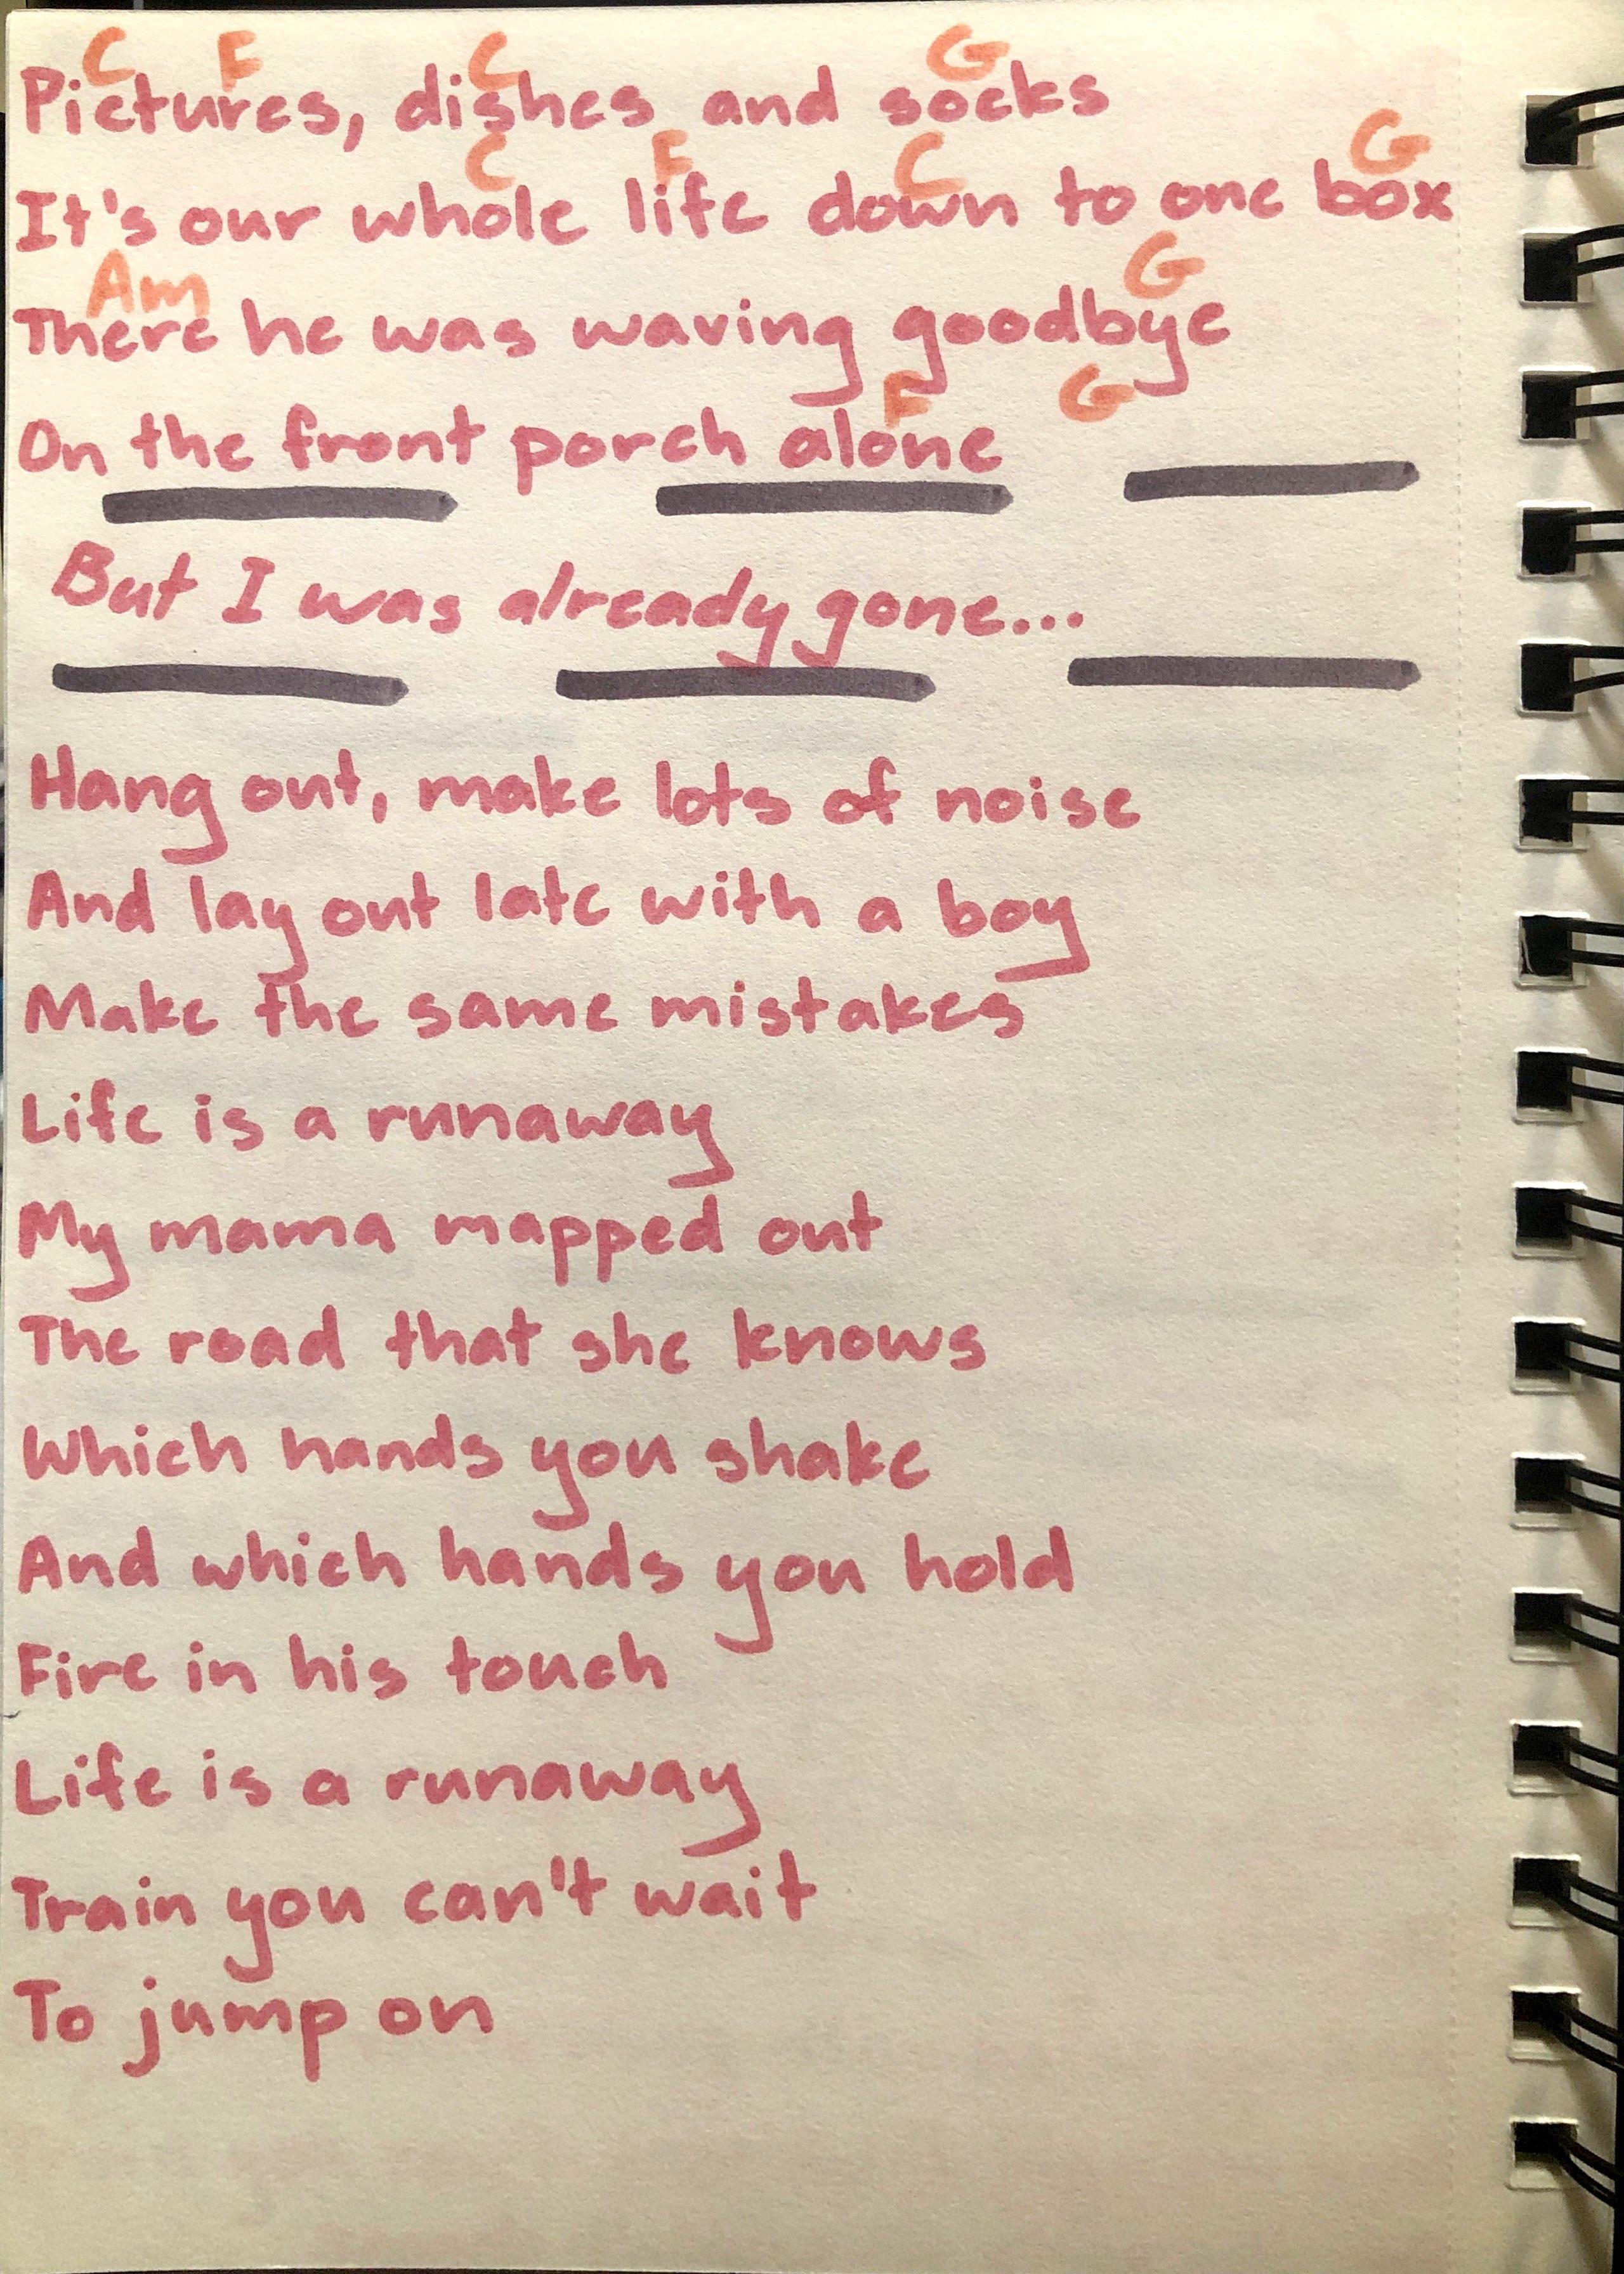 C F C G
Pictures, dishes and socks
C F C G
It's our whole life down to one box
Am G
There he was waving goodbye
F G
On the front porch alone
But I was already gone...
Hang out, make lots of noise
And lay out late with a boy
Make the same mistakes
Life is a runaway
My mama mapped out
The road that she knows
Which hands you shake
And which hands you hold
Fire in his touch
Life is a runaway
Train you can't wait
To jump on